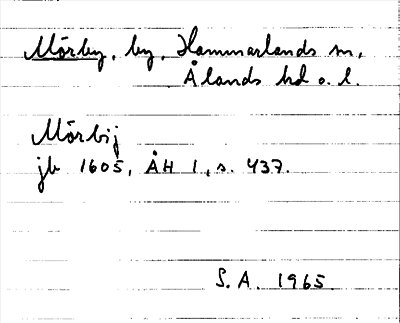 Mörby, by, Hammarlands sn,
Ålands hd o. l.
Mörbij
jb 1605, ÅH 1, s. 437.
S.A. 1965